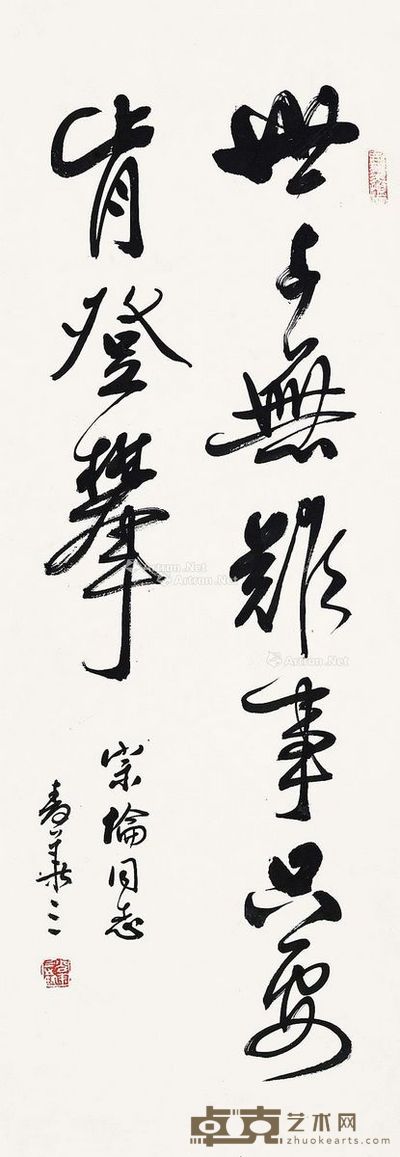 世上無難事只要
肯登攀
同志
麥華三
Artron.Net
Artron.Net
Artron.Net
Artron.Net
卓克艺术网
zhuokearts.com